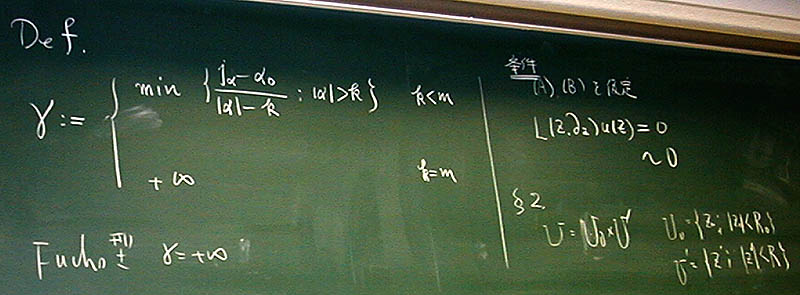 Def.
γ := { min { (j_α - α_0) / (|α| - k) ; |α| > k } k < m
+∞ k = m
Fuchs 型 γ = +∞
条件
(A), (B) を仮定
L(z, ∂_z) u(z) = 0
~ 0
§2.
U = U_0 × U' U_0 = {z_0; |z_0| < R_0}
U' = {z'; |z'| < R}